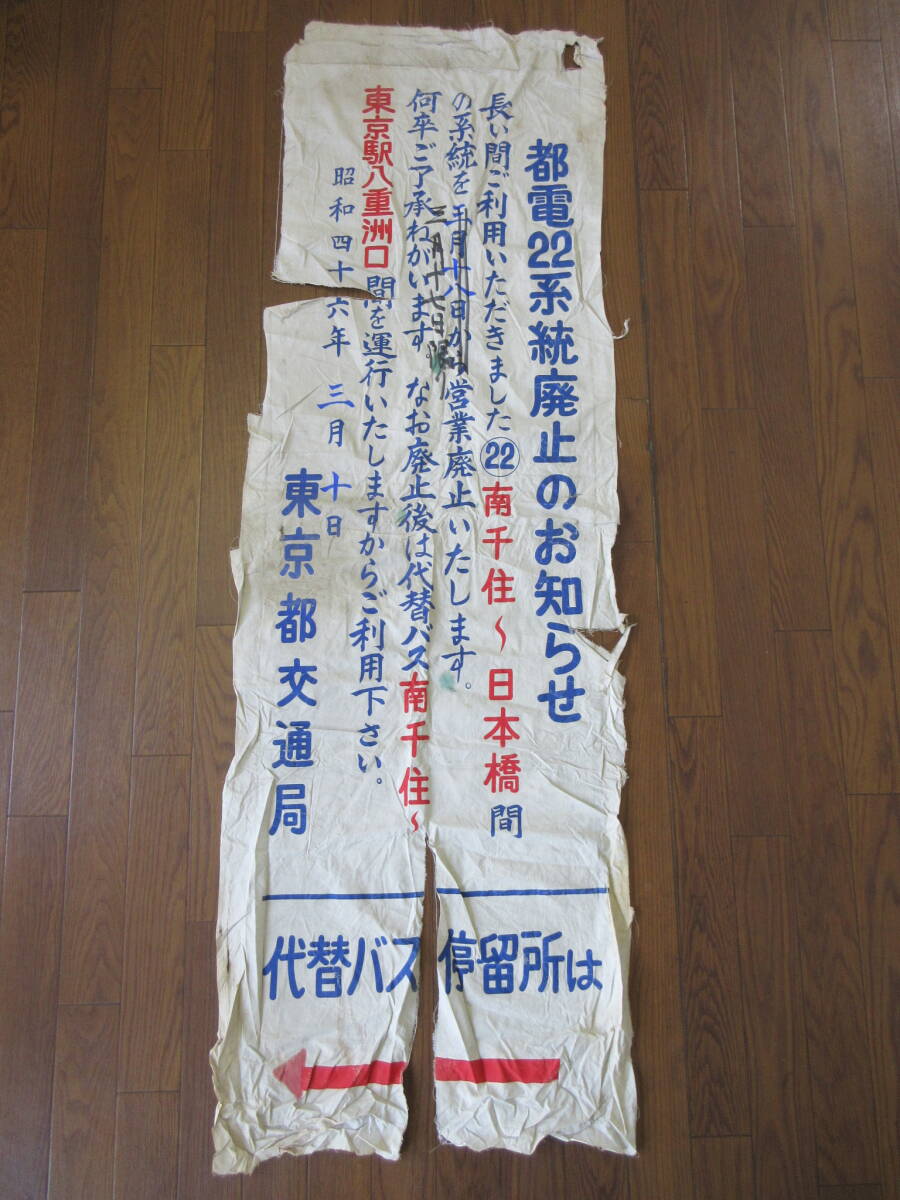 都電22系統廃止のお知らせ
長い間ご利用いただきました㉒南千住〜日本橋間
の系統を 月十八日から営業廃止いたします。
三月十七日限
何卒ご了承ねがいます。なお廃止後は代替バス南千住〜
東京駅八重洲口間を運行いたしますからご利用下さい。
昭和四十六年 三月 十日
東京都交通局
代替バス停留所は